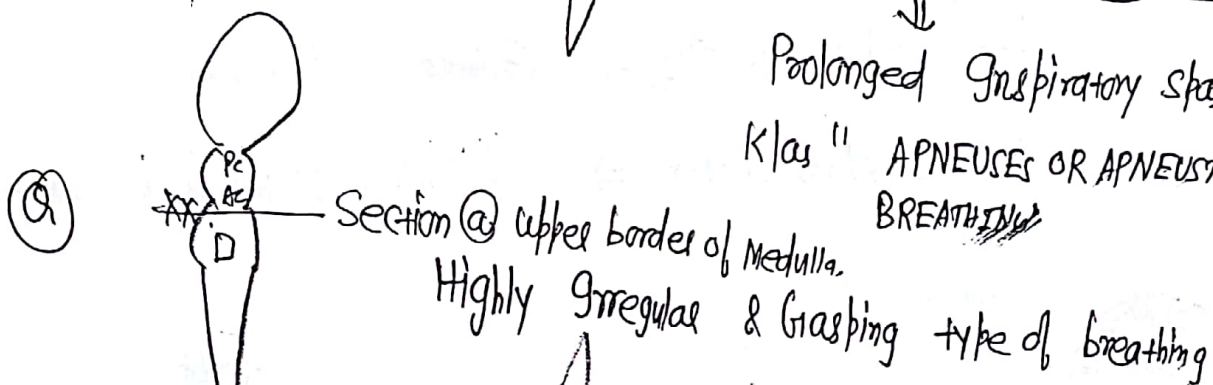 Prolonged Inspiratory spa
K/as " APNEUSES OR APNEUST
BREATHING
Q
PC
AC
XX
Section @ upper border of Medulla.
D
Highly Irregular & Gasping type of breathing